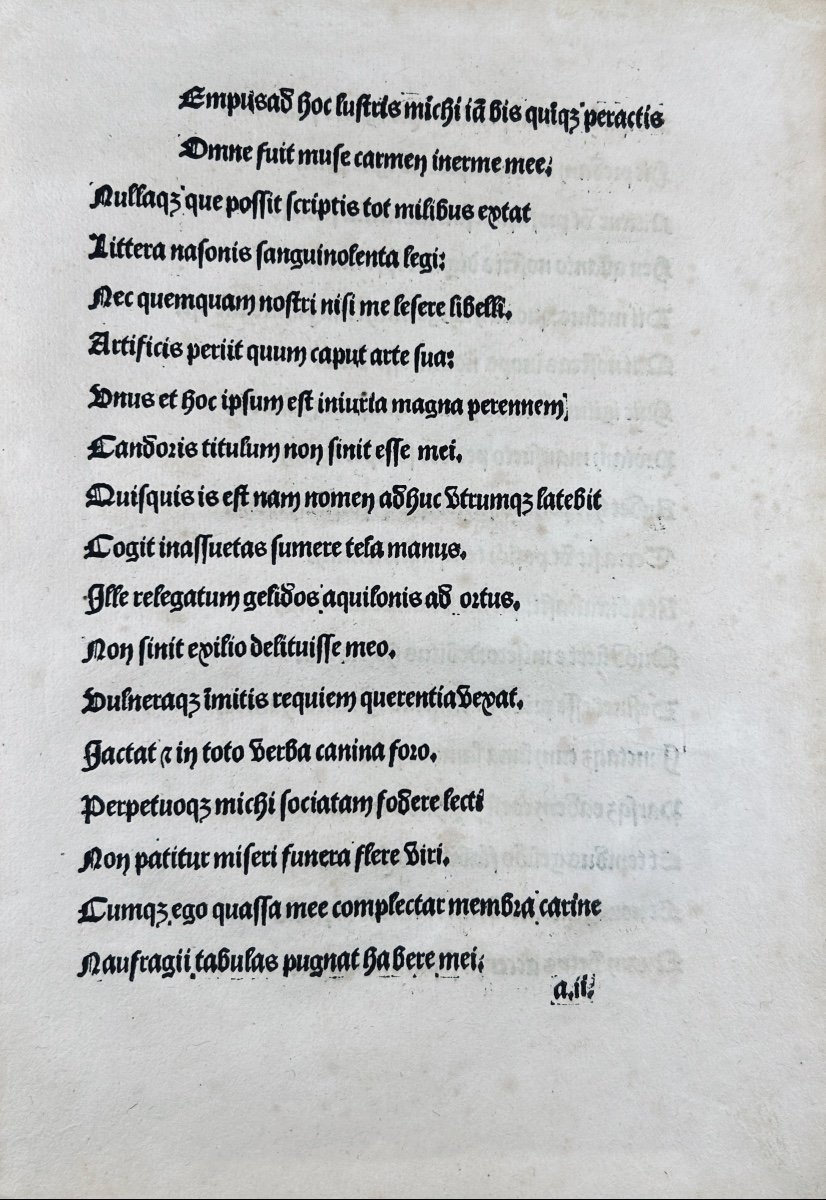 Empus ad hoc lustris michi iā bis quīqꝫ peractis
Omne fuit muse carmen inerme mee:
Nullaqꝫ que possit scriptis tot milibus extat
Littera nasonis sanguinolenta legi:
Nec quemquam nostri nisi me lesere libelli.
Artificis periit quum caput arte sua:
Vnus et hoc ipsum est iniuria magna perennem
Candoris titulum non sinit esse mei.
Quisquis is est nam nomen adhuc vtrumqꝫ latebit
Cogit inassuetas sumere tela manus.
Ille relegatum gelidos aquilonis ad ortus.
Non sinit exilio delituisse meo.
Vulneraqꝫ īmitis requiem querentia vexat.
Jactat ⁊ in toto verba canina foro.
Perpetuoqꝫ michi sociatam fodere lecti
Non patitur miseri funera flere viri.
Cumqꝫ ego quassa mee complectar membra carine
Naufragii tabulas pugnat habere mei:
a.ii.